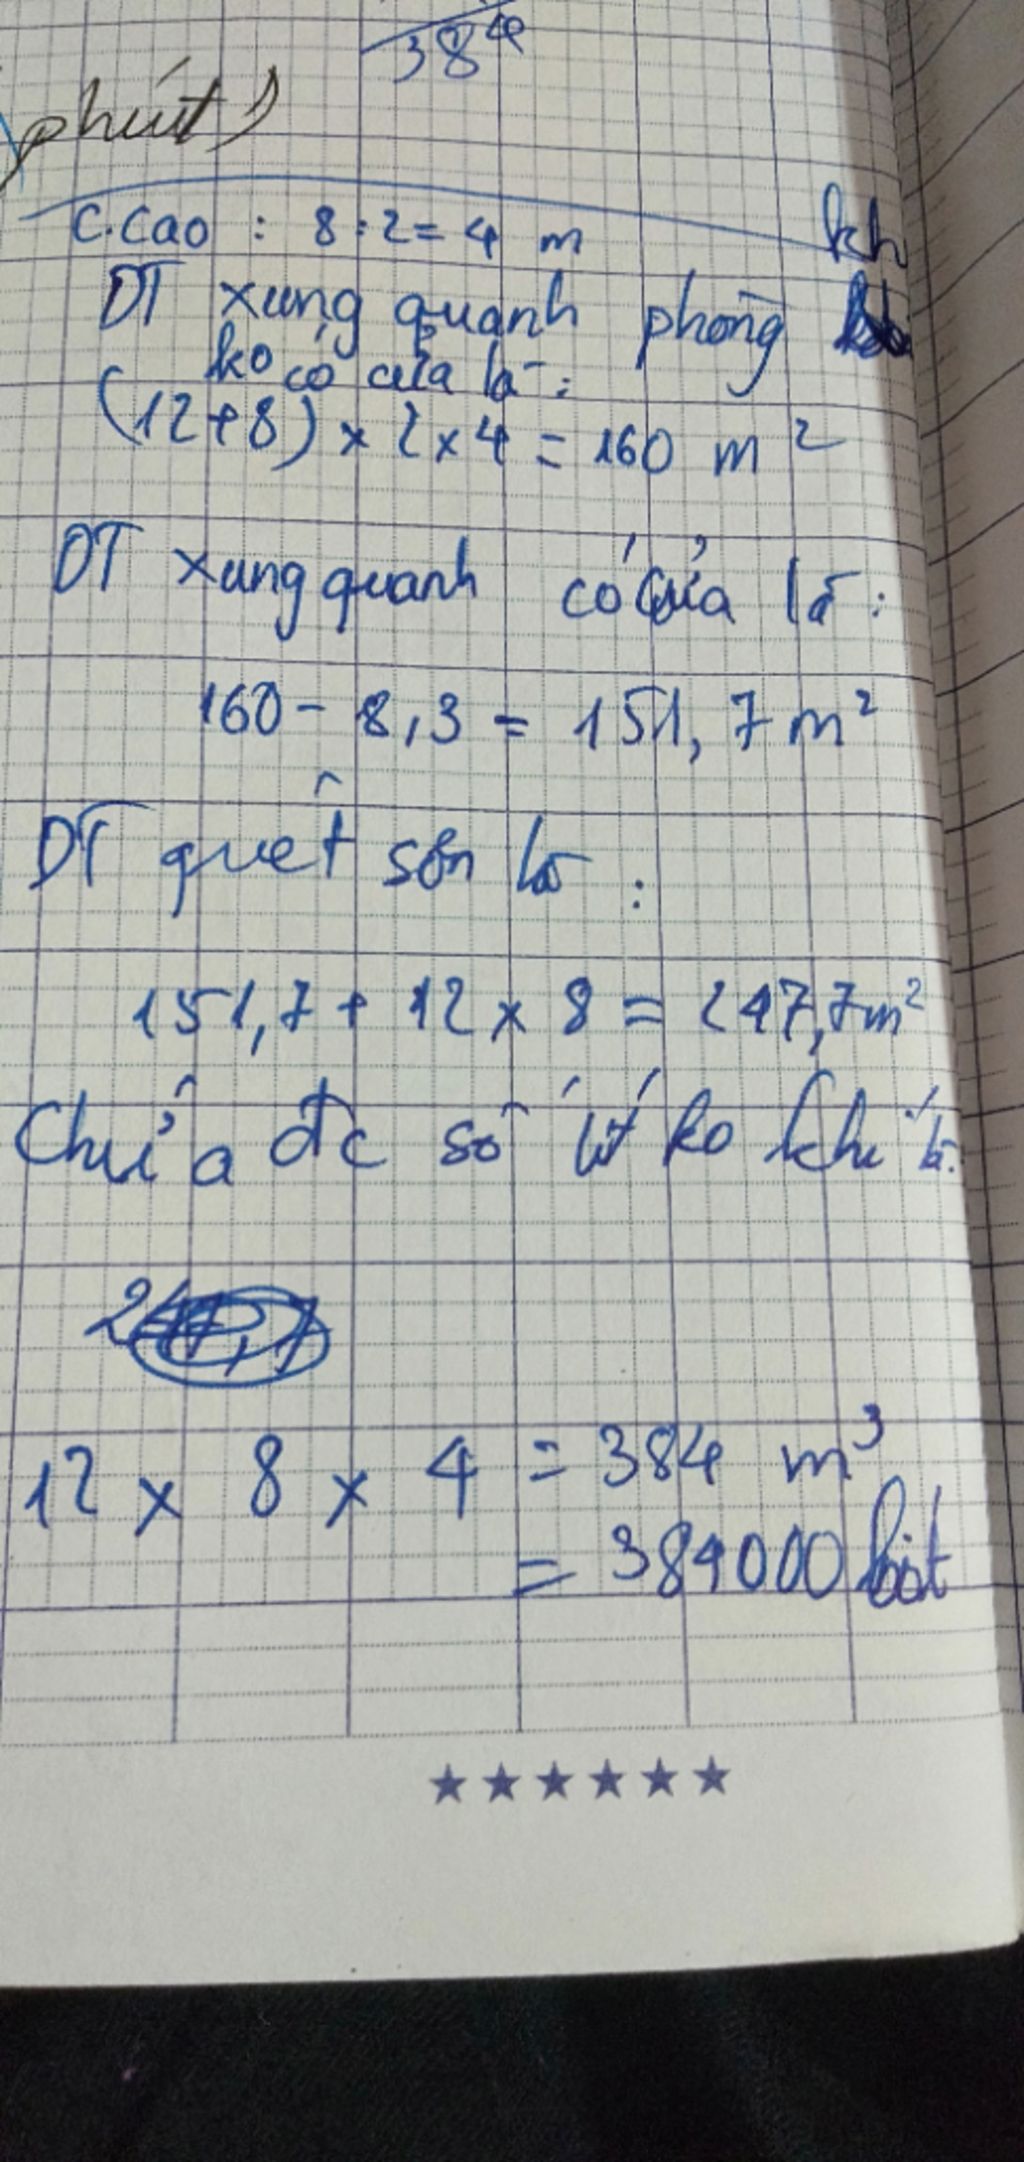 384
phút)
C.Cao : 8:2 = 4 m
kh
DT xung quanh phòng
ko có cửa là :
(12+8) x 2 x 4 = 160 m²
DT xung quanh có cửa là :
160 - 8,3 = 151,7 m²
DT quét sơn là :
151,7 + 12 x 8 = 247,7m²
Chứa đc số lít ko khí là:
12 x 8 x 4 = 384 m³
= 384000 lít